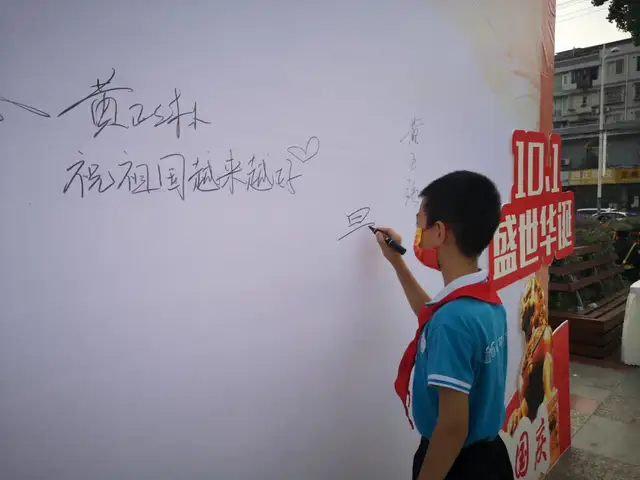 黄
祝祖国越来越好♡
黄
旦
10.1
盛世华诞
国庆